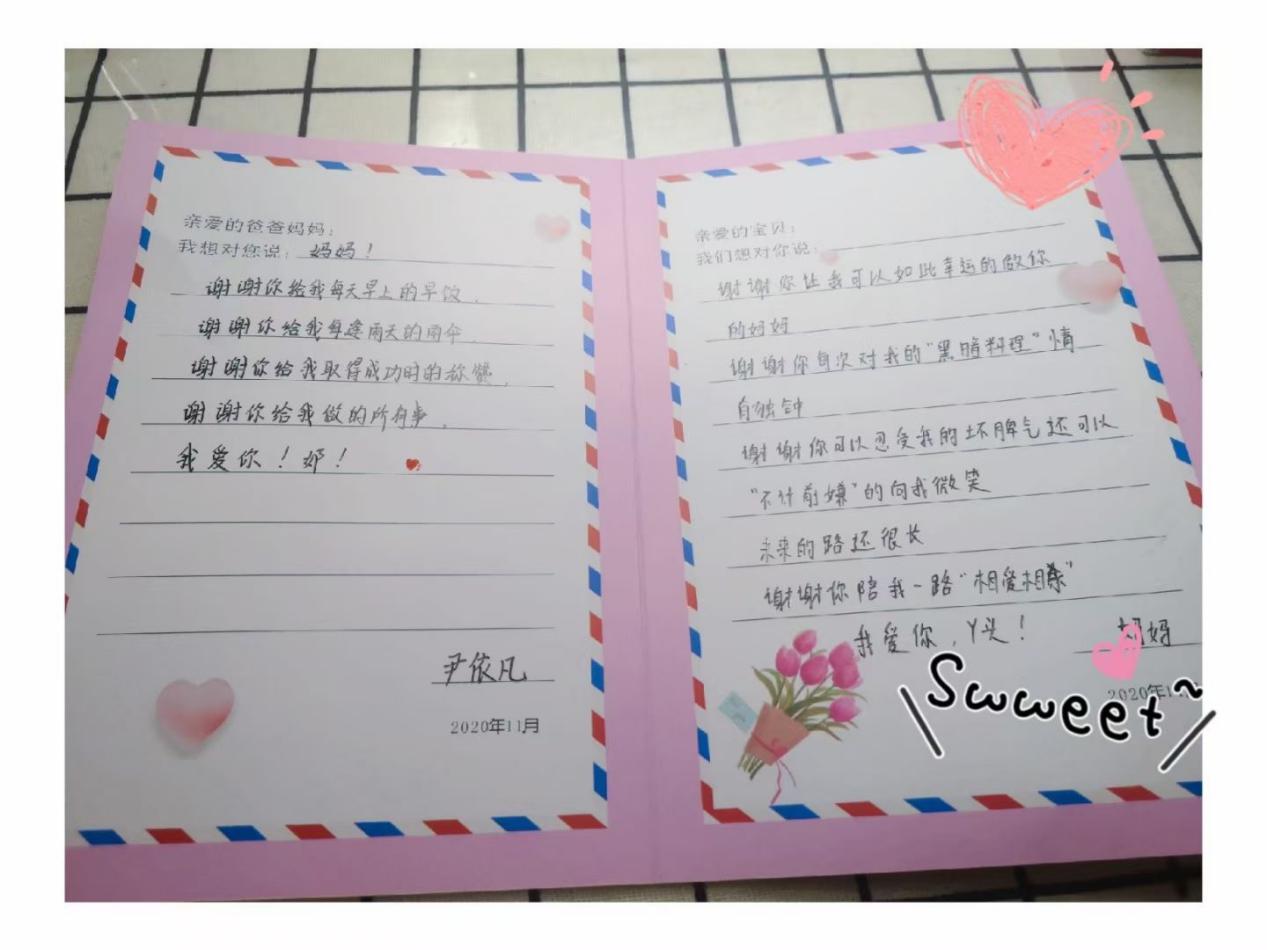 亲爱的爸爸妈妈：
我想对您说：妈妈！
谢谢你给我每天早上的早饭．
谢谢你给我每逢雨天的雨伞．
谢谢你给我取得成功时的称赞．
谢谢你给我做的所有事．
我爱你！妈！
尹依凡
2020年11月
亲爱的宝贝：
我们想对你说：
谢谢你让我可以如此幸运的做你
的妈妈
谢谢你每次对我的“黑暗料理”情
有独钟
谢谢你可以忍受我的坏脾气还可以
“不计前嫌”的向我微笑
未来的路还很长
谢谢你陪我一路“相爱相杀”
我爱你，丫头！
妈妈
2020年11月
Swweet~